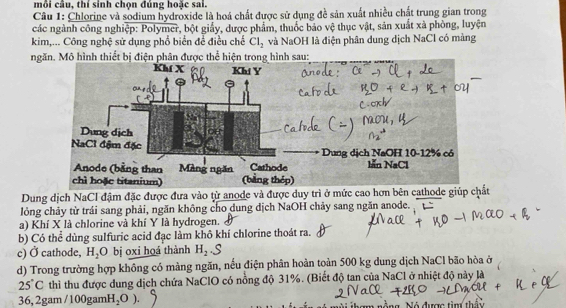 mỗi câu, thí sinh chọn đúng hoặc sai.
Câu 1: Chlorine và sodium hydroxide là hoá chất được sử dụng đề sản xuất nhiều chất trung gian trong
các ngành công nghiệp: Polymer, bột giấy, dược phẩm, thuốc bảo vệ thực vật, sản xuất xà phòng, luyện
kim,... Công nghệ sử dụng phổ biến để điều chế Cl₂ và NaOH là điện phân dung dịch NaCl có màng
ngăn. Mô hình thiết bị điện phân được thể hiện trong hình sau:
Khí X Khí Y anode: Cl → Cl + 2e
anode catode H₂O + e → H₂ + OH⁻
Dung dịch catode (-) NaOH, H₂
NaCl đậm đặc
Dung dịch NaOH 10-12% có
lẫn NaCl
Anode (bằng than Màng ngăn Cathode
chì hoặc titanium) (bằng thép)
Dung dịch NaCl đậm đặc được đưa vào từ anode và được duy trì ở mức cao hơn bên cathode giúp chất
lỏng chảy từ trái sang phải, ngăn không cho dung dịch NaOH chảy sang ngăn anode.
a) Khí X là chlorine và khí Y là hydrogen. đ
b) Có thể dùng sulfuric acid đạc làm khô khí chlorine thoát ra. đ
c) Ở cathode, H₂O bị oxi hoá thành H₂. S
d) Trong trường hợp không có màng ngăn, nếu điện phân hoàn toàn 500 kg dung dịch NaCl bão hòa ở
25°C thì thu được dung dịch chứa NaClO có nồng độ 31%. (Biết độ tan của NaCl ở nhiệt độ này là
36,2gam /100gamH₂O ).
2NaCl + 2H₂O → 2NaOH + H₂ + Cl